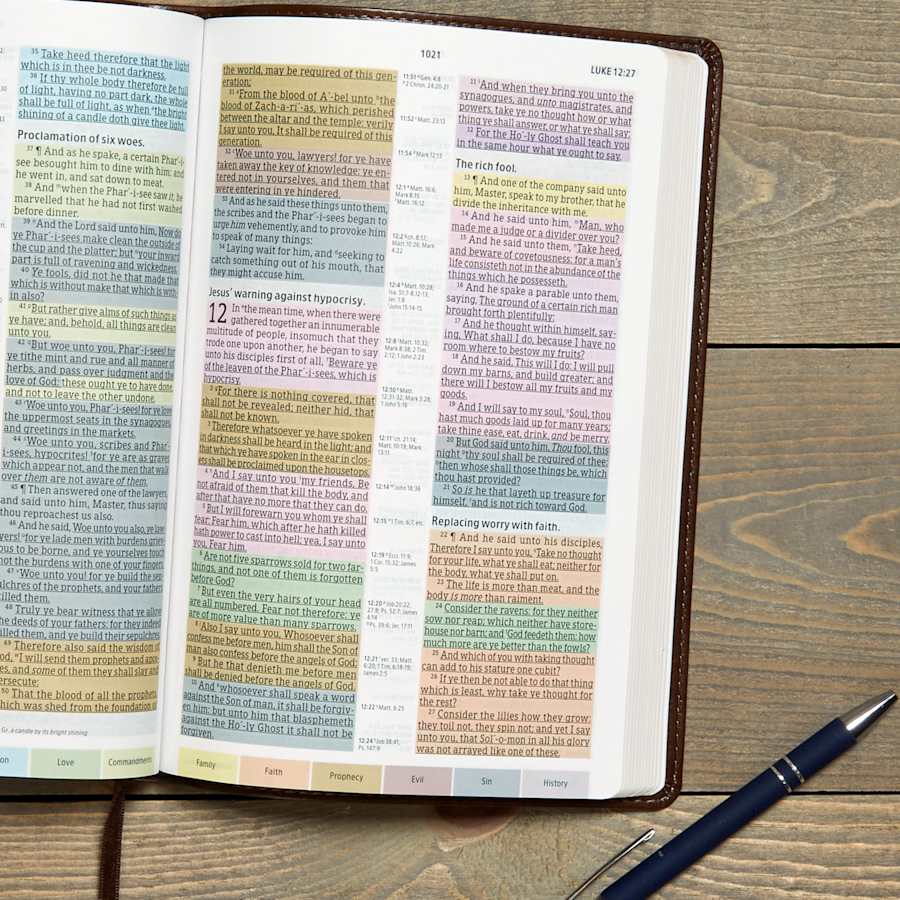 35 Take heed therefore that the light
which is in thee be not darkness.
36 If thy whole body therefore be full
of light, having no part dark, the whole
shall be full of light, as when the bright
shining of a candle doth give thee light.
Proclamation of six woes.
37 ¶ And as he spake, a certain Phar´-i-
see besought him to dine with him: and
he went in, and sat down to meat.
38 And when the Phar´-i-see saw it, he
marvelled that he had not first washed
before dinner.
39 And the Lord said unto him, Now do
ye Phar´-i-sees make clean the outside of
the cup and the platter; but your inward
part is full of ravening and wickedness.
40 Ye fools, did not he that made that
which is without make that which is with-
in also?
41 But rather give alms of such things as
ye have; and, behold, all things are clean
unto you.
42 But woe unto you, Phar´-i-sees! for
ye tithe mint and rue and all manner of
herbs, and pass over judgment and the
love of God: these ought ye to have done,
and not to leave the other undone.
43 Woe unto you, Phar´-i-sees! for ye love
the uppermost seats in the synagogues,
and greetings in the markets.
44 Woe unto you, scribes and Phar´-
i-sees, hypocrites! for ye are as graves
which appear not, and the men that walk
over them are not aware of them.
45 ¶ Then answered one of the lawyers,
and said unto him, Master, thus saying
thou reproachest us also.
46 And he said, Woe unto you also, ye law-
yers! for ye lade men with burdens griev-
ous to be borne, and ye yourselves touch
not the burdens with one of your fingers.
47 Woe unto you! for ye build the sep-
ulchres of the prophets, and your fathers
killed them.
48 Truly ye bear witness that ye allow
the deeds of your fathers: for they indeed
killed them, and ye build their sepulchres.
49 Therefore also said the wisdom of
God, I will send them prophets and apos-
tles, and some of them they shall slay and
persecute:
50 That the blood of all the prophets,
which was shed from the foundation of
Gr. a candle by its bright shining
Love
Commandments
1021
LUKE 12:27
the world, may be required of this gen-
eration;
51 From the blood of A´-bel unto the
blood of Zach-a-ri´-as, which perished
between the altar and the temple: verily
I say unto you, It shall be required of this
generation.
52 Woe unto you, lawyers! for ye have
taken away the key of knowledge: ye en-
tered not in yourselves, and them that
were entering in ye hindered.
53 And as he said these things unto them,
the scribes and the Phar´-i-sees began to
urge him vehemently, and to provoke him
to speak of many things:
54 Laying wait for him, and seeking to
catch something out of his mouth, that
they might accuse him.
Jesus' warning against hypocrisy.
12 In the mean time, when there were
gathered together an innumerable
multitude of people, insomuch that they
trode one upon another, he began to say
unto his disciples first of all, Beware ye
of the leaven of the Phar´-i-sees, which is
hypocrisy.
2 For there is nothing covered, that
shall not be revealed; neither hid, that
shall not be known.
3 Therefore whatsoever ye have spoken
in darkness shall be heard in the light; and
that which ye have spoken in the ear in clos-
ets shall be proclaimed upon the housetops.
4 And I say unto you my friends, Be
not afraid of them that kill the body, and
after that have no more that they can do.
5 But I will forewarn you whom ye shall
fear: Fear him, which after he hath killed
hath power to cast into hell; yea, I say unto
you, Fear him.
6 Are not five sparrows sold for two far-
things, and not one of them is forgotten
before God?
7 But even the very hairs of your head
are all numbered. Fear not therefore: ye
are of more value than many sparrows.
8 Also I say unto you, Whosoever shall
confess me before men, him shall the Son of
man also confess before the angels of God:
9 But he that denieth me before men
shall be denied before the angels of God.
10 And whosoever shall speak a word
against the Son of man, it shall be forgiv-
en him: but unto him that blasphemeth
against the Ho´-ly Ghost it shall not be
forgiven.
11:51 Gen. 4:8
2 Chron. 24:20-21
11:52 Matt. 23:13
11:54 Mark 12:13
12:1 Matt. 16:6;
Mark 8:15
Matt. 16:12
12:4 Matt. 10:28;
12:8 Matt. 10:32;
Mark 8:38; 2 Tim.
2:12; 1 John 2:23
12:10 Matt.
12:31-32; Mark 3:28;
1 John 5:16
12:11 ch. 21:14;
Matt. 10:19; Mark
13:11
12:14 John 18:36
12:15 1 Tim. 6:7, etc.
12:19 Eccl. 11:9;
1 Cor. 15:32; James
5:5
12:20 Job 20:22;
27:8; Ps. 52:7; James
4:14
Ps. 39:6; Jer. 17:11
12:21 ver. 33; Matt.
6:20; 1 Tim. 6:18-19;
James 2:5
12:22 Matt. 6:25
12:24 Job 38:41;
Ps. 147:9
11 And when they bring you unto the
synagogues, and unto magistrates, and
powers, take ye no thought how or what
thing ye shall answer, or what ye shall say:
12 For the Ho´-ly Ghost shall teach you
in the same hour what ye ought to say.
The rich fool.
13 ¶ And one of the company said unto
him, Master, speak to my brother, that he
divide the inheritance with me.
14 And he said unto him, Man, who
made me a judge or a divider over you?
15 And he said unto them, Take heed,
and beware of covetousness: for a man's
life consisteth not in the abundance of the
things which he possesseth.
16 And he spake a parable unto them,
saying, The ground of a certain rich man
brought forth plentifully:
17 And he thought within himself, say-
ing, What shall I do, because I have no
room where to bestow my fruits?
18 And he said, This will I do: I will pull
down my barns, and build greater; and
there will I bestow all my fruits and my
goods.
19 And I will say to my soul, Soul, thou
hast much goods laid up for many years;
take thine ease, eat, drink, and be merry.
20 But God said unto him, Thou fool, this
night thy soul shall be required of thee:
then whose shall those things be, which
thou hast provided?
21 So is he that layeth up treasure for
himself, and is not rich toward God.
Replacing worry with faith.
22 ¶ And he said unto his disciples,
Therefore I say unto you, Take no thought
for your life, what ye shall eat; neither for
the body, what ye shall put on.
23 The life is more than meat, and the
body is more than raiment.
24 Consider the ravens: for they neither
sow nor reap; which neither have store-
house nor barn; and God feedeth them: how
much more are ye better than the fowls?
25 And which of you with taking thought
can add to his stature one cubit?
26 If ye then be not able to do that thing
which is least, why take ye thought for
the rest?
27 Consider the lilies how they grow:
they toil not, they spin not; and yet I say
unto you, that Sol´-o-mon in all his glory
was not arrayed like one of these.
Family
Faith
Prophecy
Evil
Sin
History